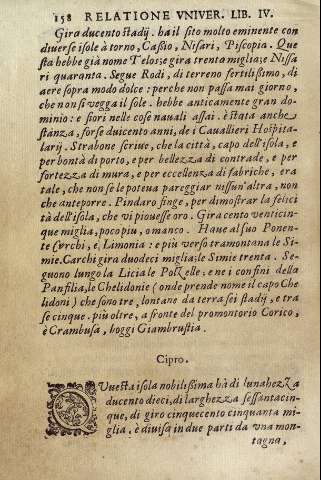 158 RELATIONE VNIVER. LIB. IV.
Gira ducento stadij. ha il sito molto eminente con
diuerse isole à torno, Caßio, Nisari, Piscopia. Que
sta hebbe già nome Telos: e gira trenta miglia; e Nissa
ri quaranta. Segue Rodi, di terreno fertilißimo, di
aere sopra modo dolce: perche non passa mai giorno,
che non si vegga il sole. hebbe anticamente gran do-
minio: e fiorì nelle cose nauali assai. è stata anche
stanza, forse duicento anni, de i Cauallieri Hospita-
larij. Strabone scriue, che la città, capo dell'isola, e
per bontà di porto, e per bellezza di contrade, e per
fortezza di mura, e per eccellenza di fabriche, era
tale, che non se le poteua pareggiar nissun'altra, non
che anteporre. Pindaro finge, per dimostrar la felici
tà dell'isola, che vi piouesse oro. Gira cento venticin-
que miglia, poco piu, o manco. Haue al suo Ponen-
te Carchi, e, Limonia: e più verso tramontana le Si-
mie. Carchi gira duodeci miglia; le Simie trenta. Se-
guono lungo la Licia le Polzelle: e ne i confini della
Panfilia, le Chelidonie (onde prende nome il capo Che
lidoni) che sono tre, lontane da terra sei stadij, e tra
se cinque. più oltre, a fronte del promontorio Corico,
è Crambusa, hoggi Giambrustia.
Cipro.
QVesta isola nobilißima hà di lunghezza
ducento dieci, di larghezza sessantacin-
que, di giro cinquecento cinquanta mi-
glia. è diuisa in due parti da vna mon-
tagna,